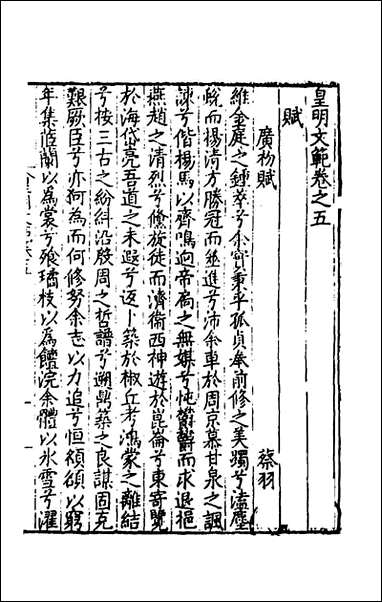 皇明文範卷之五
賦
廣初賦 蔡羽
維金庭之鍾萃兮余寔秉乎孤貞奉前修之美躅兮溘塵
蛻而揚清方勝冠而並進兮沛余車於周京慕甘泉之諷
諫兮偕楊馬以齊鳴迥帝閽之無媒兮忳鬱鬱而求退挹
燕趙之清烈兮儵旋徒而濟衛西神遊於崑崙兮東寄覽
於海岱亮吾道之未遐兮返卜築於椒丘考鴻蒙之離結
兮按三古之紛糾沿殷周之哲譜兮遡鼎築之良謀固克
艱厥臣兮亦何為而何修努余志以力追兮恒頎頎以窮
年集菃蘭以為裳兮飱璚枝以為饘浣余體以氷雪兮濯